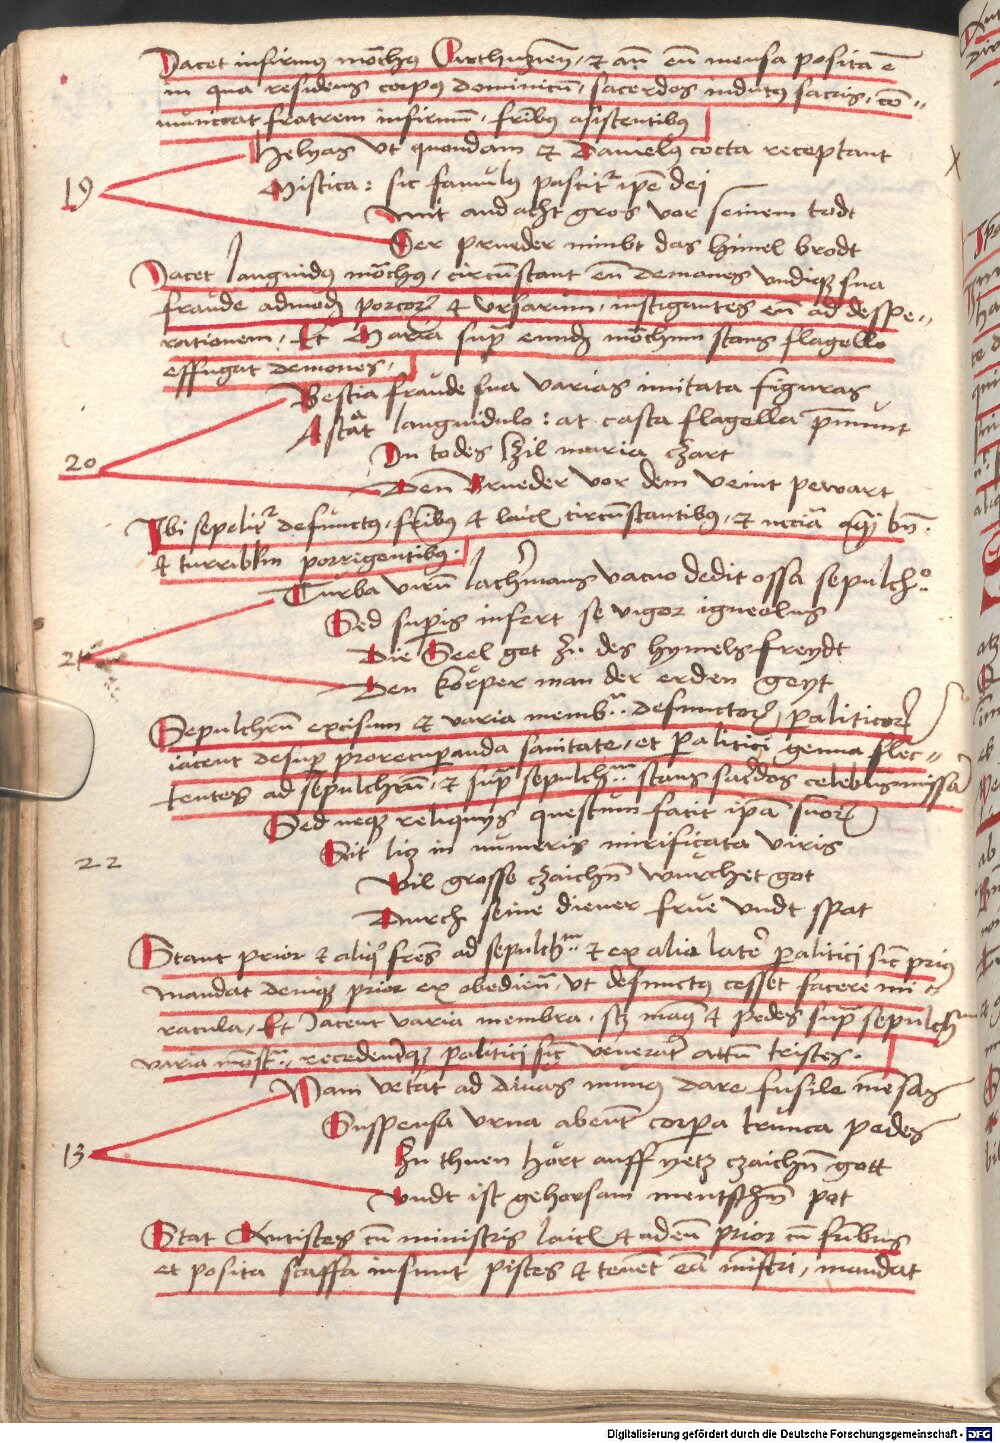 Iacet infirmus mo̅chus Carthusien̅, et an̅ eu̅ mensa posita e̅
in qua residens corpus dominicu̅, sacerdos indutus sacris, co̅=
municat fratrem infirmu̅, fr̅ibus asistentibus
Helyas ut quondam et Danielus cocta receptant
19
Mistica: sic famulus pascit^r ip̅e dei
Mit andacht gros vor seinem todt
Der prueder nimbt das himel brodt
Iacet languidus mo̅chus, circu̅stant eu̅ demones undiq̨ sua
fraude admod̅ porcor̅ et ursarum, instigantes eu̅ ad despe=
rationem, Et Maria sup̅ eund̅ mo̅chum stans flagello
effugat demones,
Bestia fraude sua varias imitata figuras
Astat languidulo: at casta flagella p̅munt
20
In todes zil maria czart
Den̅ Brueder vor dem veint pewart
Ibi sepelit^r defunctus, fr̅ibus et laicis circu̅stantibus, et
et turriblm̅ porrigentibus.
Turba viru̅ lachrimans vacuo dedit ossa sepulch^o
Sed sup̅is infert se vigor igneolus
21
Die Seel get zu des hymels freydt
Den körper man der erden geyt
Sepulchru̅ excisum et varia memb^ra defunctor̅, paliticor̅
iacent desup̅ pro recup̅anda sanitate, et palitici genua flec=
tentes ad sepulchru̅, et sup̅ sepulch^rum stans sacerdos celebrans missa̅
Sed neq̨ reliquijs questum facit ip̅a suor̅
Sit liz in numeris mirificata viris
22
Vil grosse czaichn̅ wurchet got
Durch seine diener frue undt spat
Stant prior et aliq̅ fres̅ ad sepulch^rum et ex alio late^re palitici sic̅ prius
mandat deniq̨ prior ex obedien̅, ut defunctus cesset facere mi=
racula, Et Iacent varia membra, sc̨ man̅ et pedes sup̅ sepulch^rum
varia mo̅st^ra, recedentq̨ palitici sic̅ venera̅t attn̅ tristes.
Nam vetat ad divas munus dare fusile mensas
Suspensa urna abeu̅t corpa trunca pedes
13
Zu thuen hört auff yetz czaichn̅ gott
Undt ist gehorsam mentschn̅ pot
Stat Antistes cu̅ ministris laicis et adem̅ prior cu̅ fr̅ibus
et posita scaffa insunt pisces et tene̅t ea̅ mi̅stri, mandat
Digitalisierung gefördert durch die Deutsche Forschungsgemeinschaft - DFG